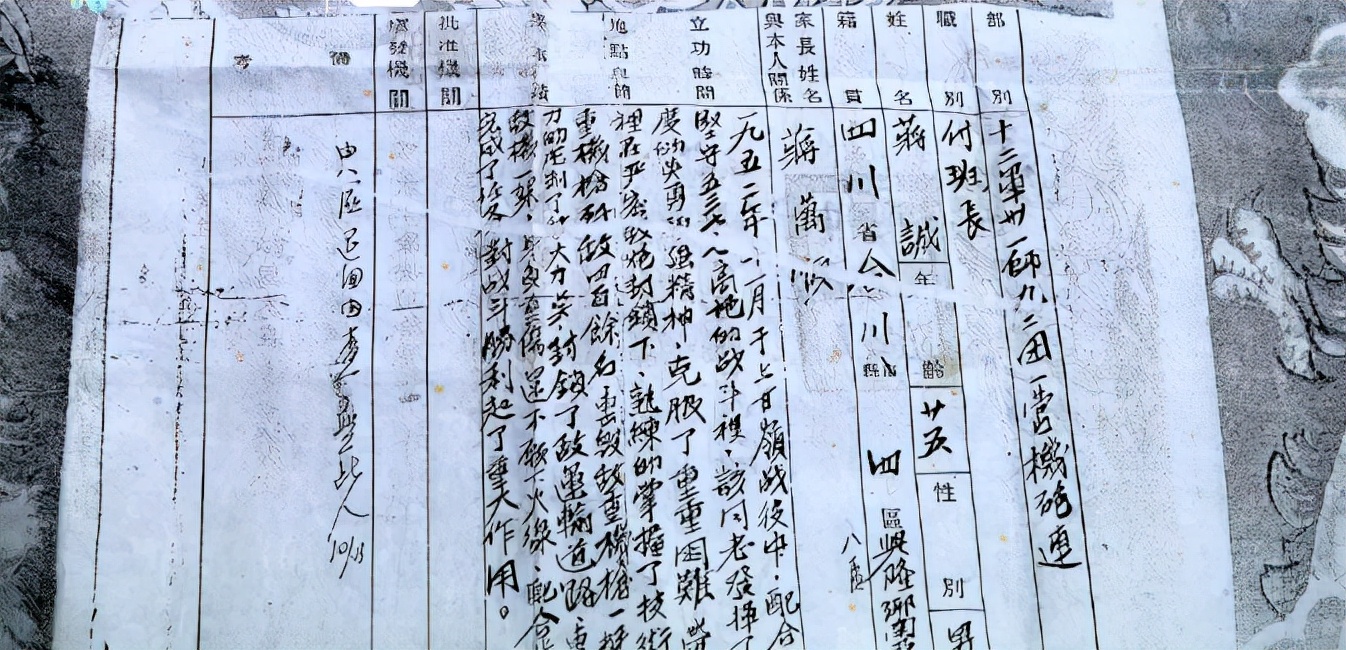 部別 十二軍卅一師九二团一营機砲連
職別 付班長
姓名 蔣誠 年齡 廿五 性別 男
籍貫 四川省合川縣 四區興隆鄉
家長姓名與本人關係 蔣萬順
立功時間 一九五二年十一月于上甘嶺战役中，配合
坚守五三七、七高地的战斗裡，該同志發揮了
度的英勇頑强精神，克服了重重困難
地點與簡 裡在严密敌炮封鎖下、熟練的掌握了技術
重機槍 敌四百餘名 击毁敌重機槍一挺
要事蹟 力的压制了敌 封鎖了敌運輸道路、
敌機一架，身負重傷還不願下火線，配合
完成了任务 對战斗勝利起了重大作用。
批准機關
填發機關
備考 由八區 查無此人 10/13